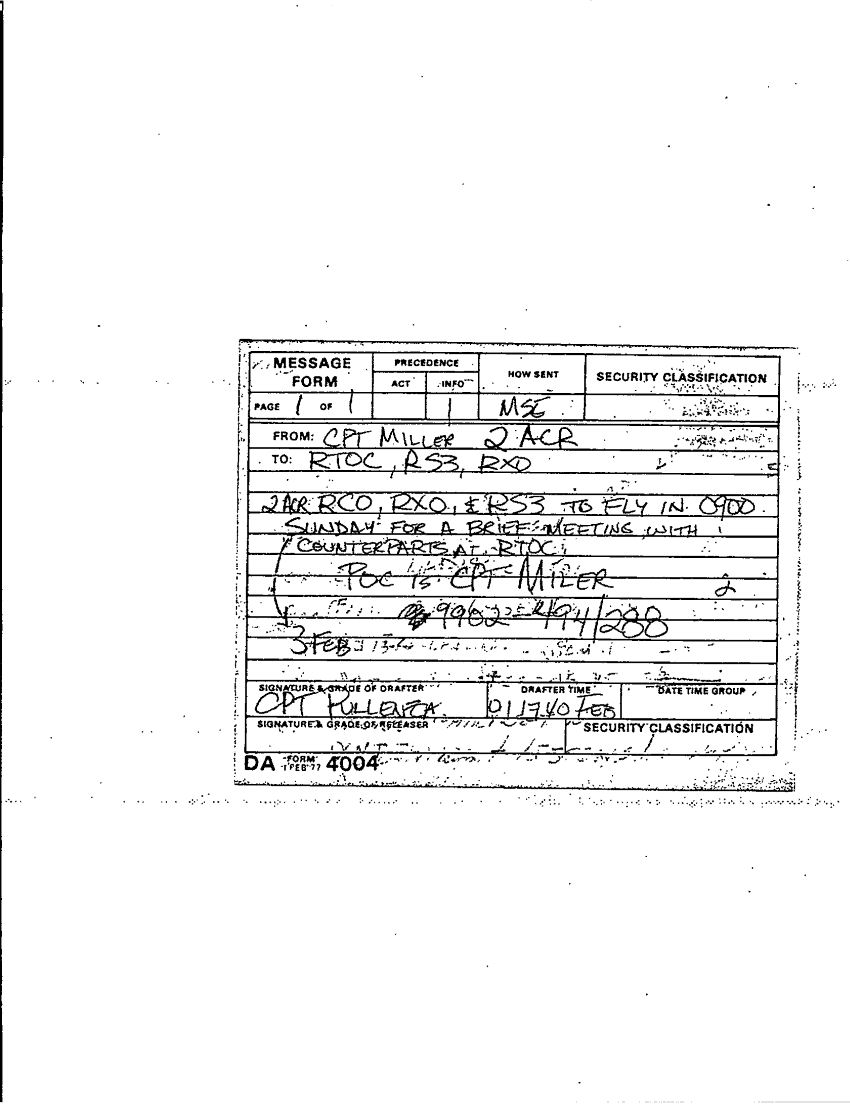 MESSAGE FORM
PRECEDENCE
ACT INFO
HOW SENT
SECURITY CLASSIFICATION
PAGE 1 OF 1
1
MSE
FROM: CPT MILLER 2 ACR
TO: RTOC, RS3, RXO
2 ACR RCO, RXO, & RS3 TO FLY IN 0900
SUNDAY FOR A BRIEF MEETING WITH
COUNTERPARTS AT RTOC.
POC IS CPT MILLER
3 FEB
SIGNATURE & GRADE OF DRAFTER
DRAFTER TIME
DATE TIME GROUP
CPT
011740 FEB
SIGNATURE & GRADE OF RELEASER
SECURITY CLASSIFICATION
DA FORM 1 FEB 77 4004